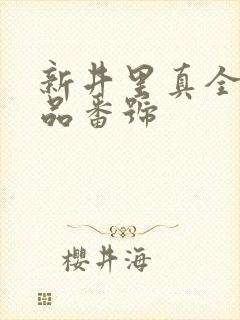 新井里真全
品番號
櫻井海